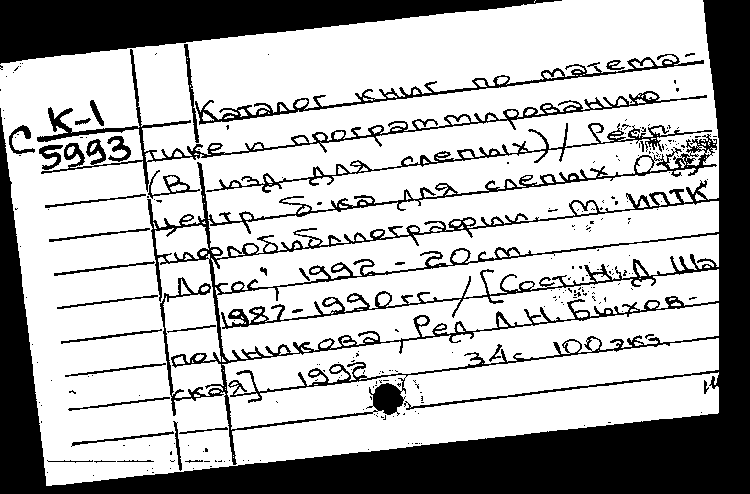 С К-1
5993
Каталог книг по матема-
тике и программированию:
(В изд. для слепых) / Респ.
центр. б-ка для слепых. Отд.
тифлобиблиографии. - М.: ИПТК
"Логос", 1992. - 20 см.
1987-1990 гг. / [Сост. Н. Д. Ша
пошникова; Ред. Л. Н. Быхов-
ская]. 1992 34 с. 100 экз.